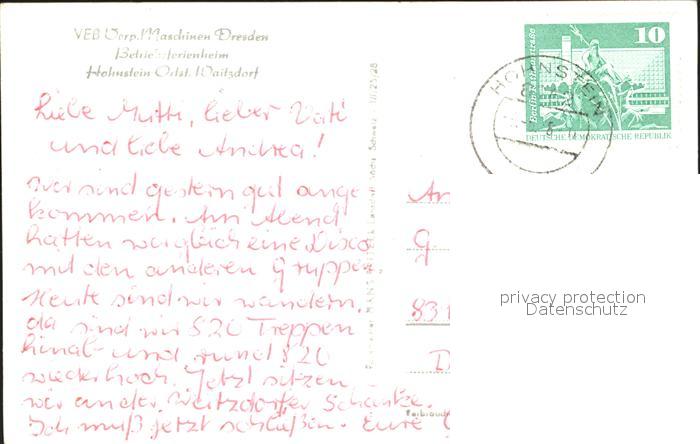 VEB Verp. Maschinen Dresden
Betriebsferienheim
Hohnstein Ortst. Waitzdorf
10
Berlin-Rathausstraße
DEUTSCHE DEMOKRATISCHE REPUBLIK
HOHNSTEIN
Liebe Mutti, lieber Vati
und liebe Andrea!
wir sind gestern gut ange
kommen. Am Abend
hatten wir gleich eine Disco
mit den anderen Gruppen.
Heute sind wir wandern.
da sind wir 820 Treppen
hinab- und rund 820
wieder hoch. Jetzt sitzen
wir an der Waitzdorfer Schänke.
Ich muß jetzt schließen. Eure
An
G
831
D
privacy protection
Datenschutz